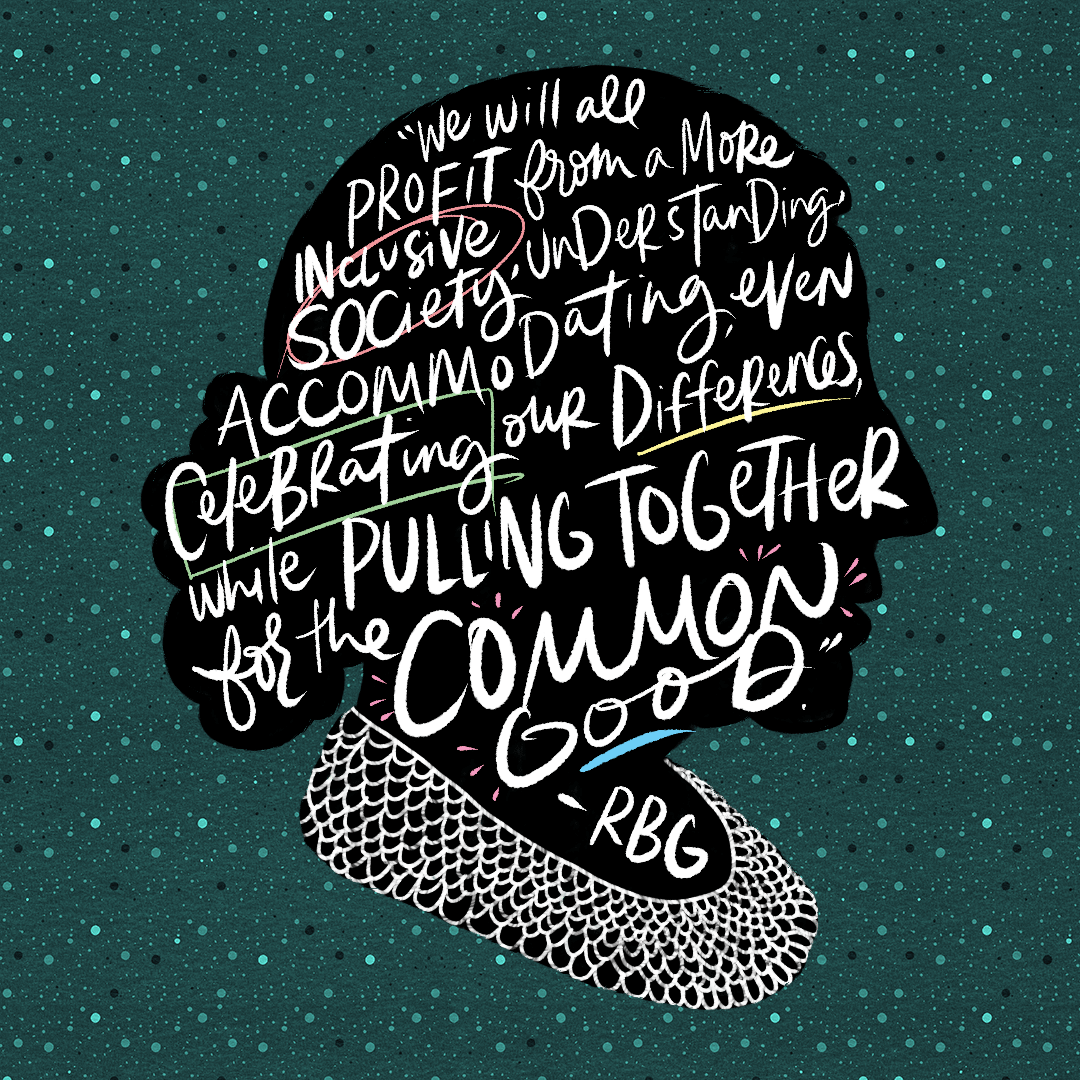 "We will all
PROFIT from a MORe
INcLusiVe
SOCieTy, UnDeRsTanDing,
ACCOMMoDaTing, eVeN
CeleBRaTing ouR DiffeRences,
while PULLiNG TOGeTHeR
for the COMMON
GooD."
- RBG